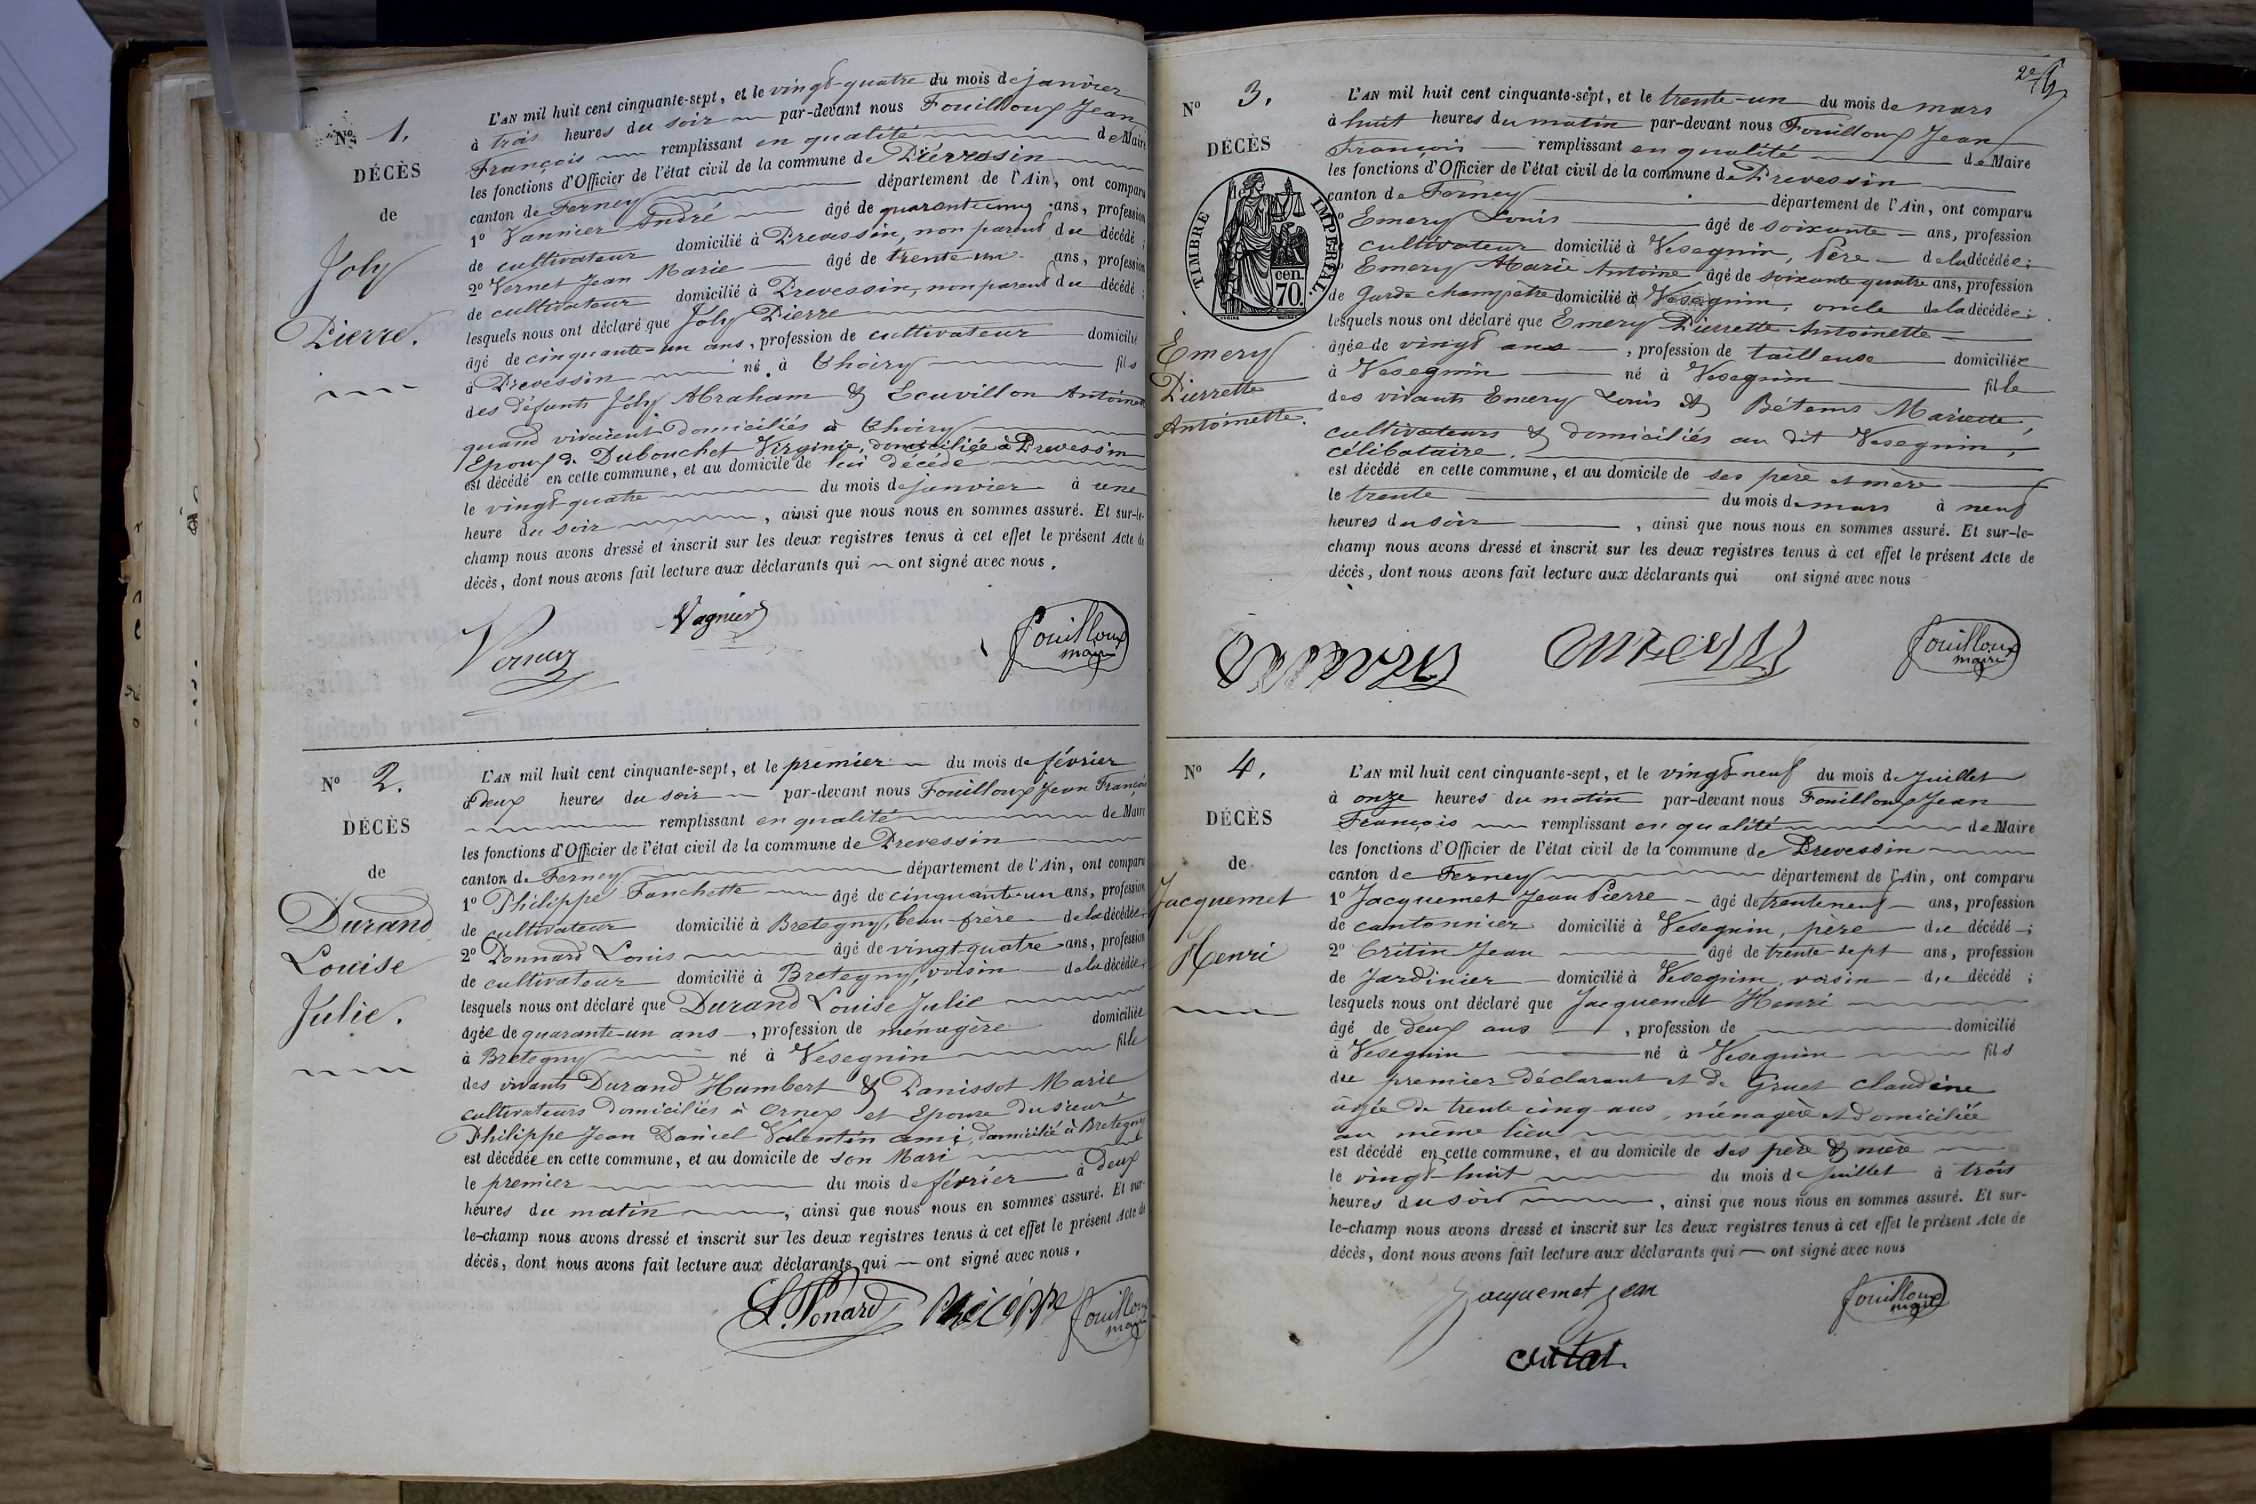 N° 1.
DÉCÈS
de
Joly
Pierre.
L'AN mil huit cent cinquante-sept, et le vingt-quatre du mois de janvier
à trois heures du soir par-devant nous Fouilloux Jean
François remplissant en qualité de Maire
les fonctions d'Officier de l'état civil de la commune de Prévessin
canton de Ferney département de l'Ain, ont comparu
1° Vannier André âgé de quarante cinq ans, profession
de cultivateur domicilié à Prevessin, non parent du décédé ;
2° Vernet Jean Marie âgé de trente-un ans, profession
de cultivateur domicilié à Prevessin, non parent du décédé ;
lesquels nous ont déclaré que Joly Pierre
âgé de cinquante-un ans, profession de cultivateur domicilié
à Prevessin né à Thoiry fils
des défunts Joly Abraham & Ecuvillon Antoinette
quand vivaient domiciliés à Thoiry
Epoux de Dubouchet Virginie, domiciliée à Prevessin
est décédé en cette commune, et au domicile de lui décédé
le vingt quatre du mois de janvier à une
heure du soir, ainsi que nous nous en sommes assuré. Et sur-le-
champ nous avons dressé et inscrit sur les deux registres tenus à cet effet le présent Acte de
décès, dont nous avons fait lecture aux déclarants qui ont signé avec nous.
Vagnier
Fouilloux
maire
N° 2.
DÉCÈS
de
Durand
Louise
Julie.
L'AN mil huit cent cinquante-sept, et le premier du mois de février
à deux heures du soir par-devant nous Fouilloux Jean François
remplissant en qualité de Maire
les fonctions d'Officier de l'état civil de la commune de Prevessin
canton de Ferney département de l'Ain, ont comparu
1° Philippe Fanchette âgé de cinquante-un ans, profession
de cultivateur domicilié à Bretegny, beau-frère de la décédée ;
2° Ponnard Louis âgé de vingt-quatre ans, profession
de cultivateur domicilié à Bretegny, voisin de la décédée ;
lesquels nous ont déclaré que Durand Louise Julie
âgée de quarante-un ans, profession de ménagère domiciliée
à Bretegny né à Vesegnin fille
des vivants Durand Humbert & Panissot Marie
cultivateurs domiciliés à Ornex et Epouse du sieur
Philippe Jean Daniel Valentin ami, domicilié à Bretegny
est décédée en cette commune, et au domicile de son Mari
le premier du mois de février à deux
heures du matin, ainsi que nous nous en sommes assuré. Et sur-
le-champ nous avons dressé et inscrit sur les deux registres tenus à cet effet le présent Acte de
décès, dont nous avons fait lecture aux déclarants qui ont signé avec nous.
L. Ponard Philippe Fouilloux
maire
2e
N° 3.
DÉCÈS
TIMBRE IMPÉRIAL.
cen.
70.
Emery
Pierrette
Antoinette.
L'AN mil huit cent cinquante-sept, et le trente-un du mois de mars
à huit heures du matin par-devant nous Fouilloux Jean
François remplissant en qualité de Maire
les fonctions d'Officier de l'état civil de la commune de Prevessin
canton de Ferney département de l'Ain, ont comparu
Emery Louis âgé de soixante ans, profession
cultivateur domicilié à Vesegnin, Père de la décédée ;
Emery Marie Antoine âgé de soixante quatre ans, profession
de Garde champêtre domicilié à Vesegnin, oncle de la décédée ;
lesquels nous ont déclaré que Emery Pierrette Antoinette
âgée de vingt ans, profession de tailleuse domiciliée
à Vesegnin né à Vesegnin fille
des vivants Emery Louis & Bétems Mariette,
cultivateurs & domiciliés au dit Vesegnin,
célibataire.
est décédé en cette commune, et au domicile de ses père et mère
le trente du mois de mars à neuf
heures du soir, ainsi que nous nous en sommes assuré. Et sur-le-
champ nous avons dressé et inscrit sur les deux registres tenus à cet effet le présent Acte de
décès, dont nous avons fait lecture aux déclarants qui ont signé avec nous
Fouilloux
maire
N° 4.
DÉCÈS
de
Jacquemet
Henri
L'AN mil huit cent cinquante-sept, et le vingt neuf du mois de Juillet
à onze heures du matin par-devant nous Fouilloux Jean
François remplissant en qualité de Maire
les fonctions d'Officier de l'état civil de la commune de Prevessin
canton de Ferney département de l'Ain, ont comparu
1° Jacquemet Jean Pierre âgé de trente neuf ans, profession
de cantonnier domicilié à Vesegnin, père du décédé ;
2° Critin Jean âgé de trente-sept ans, profession
de Jardinier domicilié à Vesegnin, voisin du décédé ;
lesquels nous ont déclaré que Jacquemet Henri
âgé de deux ans, profession de domicilié
à Vesegnin né à Vesegnin fils
du premier déclarant et de Gruet Claudine
âgée de trente cinq ans, ménagère et domiciliée
au même lieu
est décédé en cette commune, et au domicile de ses père & mère
le vingt-huit du mois de juillet à trois
heures du soir, ainsi que nous nous en sommes assuré. Et sur-
le-champ nous avons dressé et inscrit sur les deux registres tenus à cet effet le présent Acte de
décès, dont nous avons fait lecture aux déclarants qui ont signé avec nous
Jacquemet Jean
Fouilloux
maire